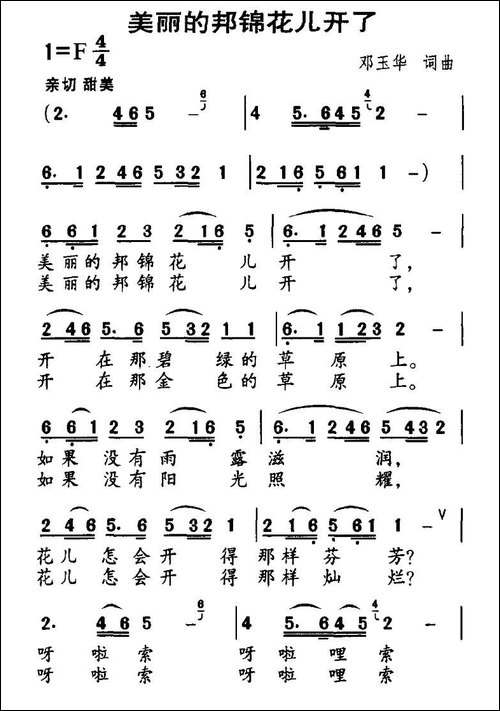 美丽的邦锦花儿开了
1=F 4/4
邓玉华 词曲
亲切 甜美
(2. 465 - | 4 5.645 2 - |
6.1 2465 532 1 | 216 561 1 -)
6 61 23 216 5 | 6. 1 2465 - |
美丽的邦锦花 儿开 了,
美丽的邦锦花 儿开 了,
246 5.6 532 11 | 6.1 123 2 - |
开 在那碧 绿的草原 上。
开 在那金 色的草原 上。
6 61 23 216 5 | 6. 1 246 5432 |
如果 没有雨 露滋 润,
如果 没有阳 光照 耀,
246 5.6 532 1 | 216 561 1 - V
花儿 怎会开 得那样芬 芳?
花儿 怎会开 得那样灿 烂?
2. 46 5 - | 4 5.645 2 - |
呀 啦索 呀啦哩索
呀 啦索 呀啦哩索